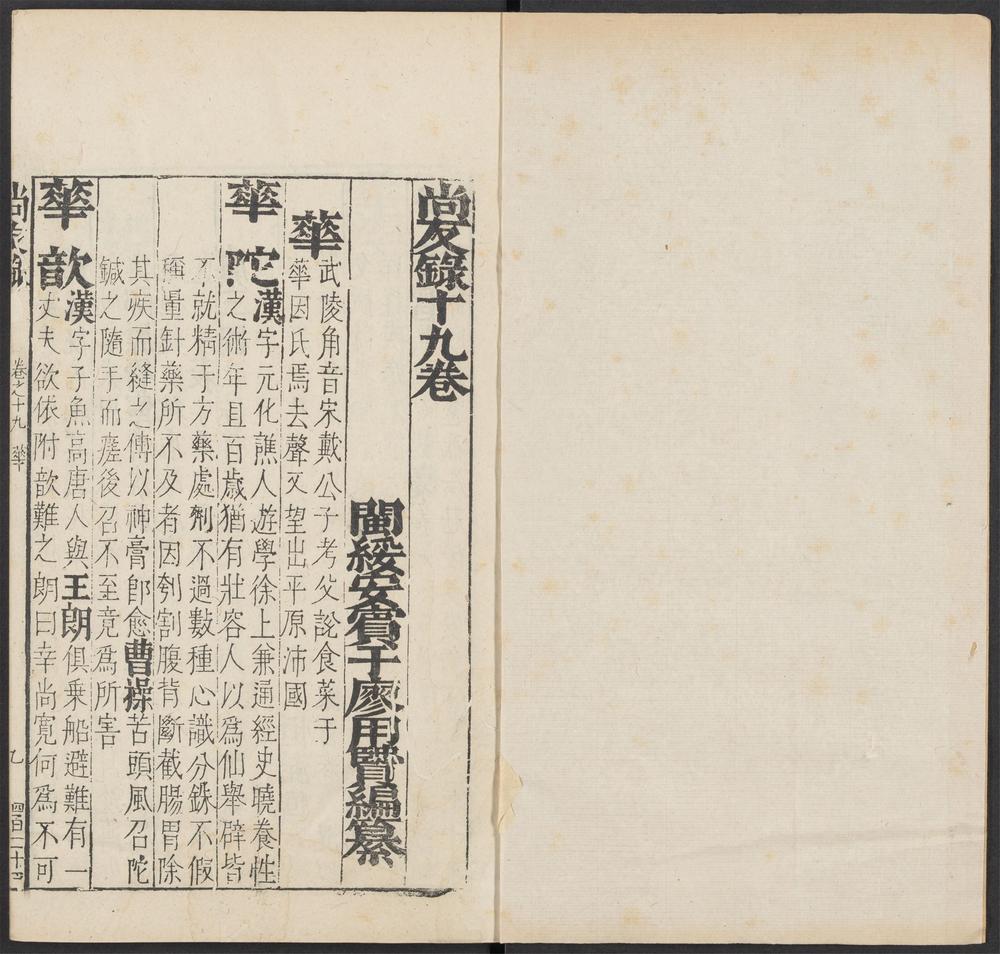 尚友錄十九卷
閩綏安賓于廖用賢編纂
華
武陵角音宋戴公子考父說食菜于
華因氏焉去聲又望出平原沛國
華陀
漢字元化譙人遊學徐上兼通經史曉養性
之術年且百歲猶有壯容人以爲仙舉辟皆
不就精于方藥處劑不過數種心識分銖不假
稱量針藥所不及者因刳割腹背斷截腸胃除
其疾而縫之傅以神膏卽愈曹操苦頭風召陀
鍼之隨手而瘥後召不至竟爲所害
華歆
漢字子魚高唐人與王朗俱乗船避難有一
丈夫欲依附歆難之朗曰幸尚寬何爲不可
尚友錄
卷之十九 華
乙
四百二十四